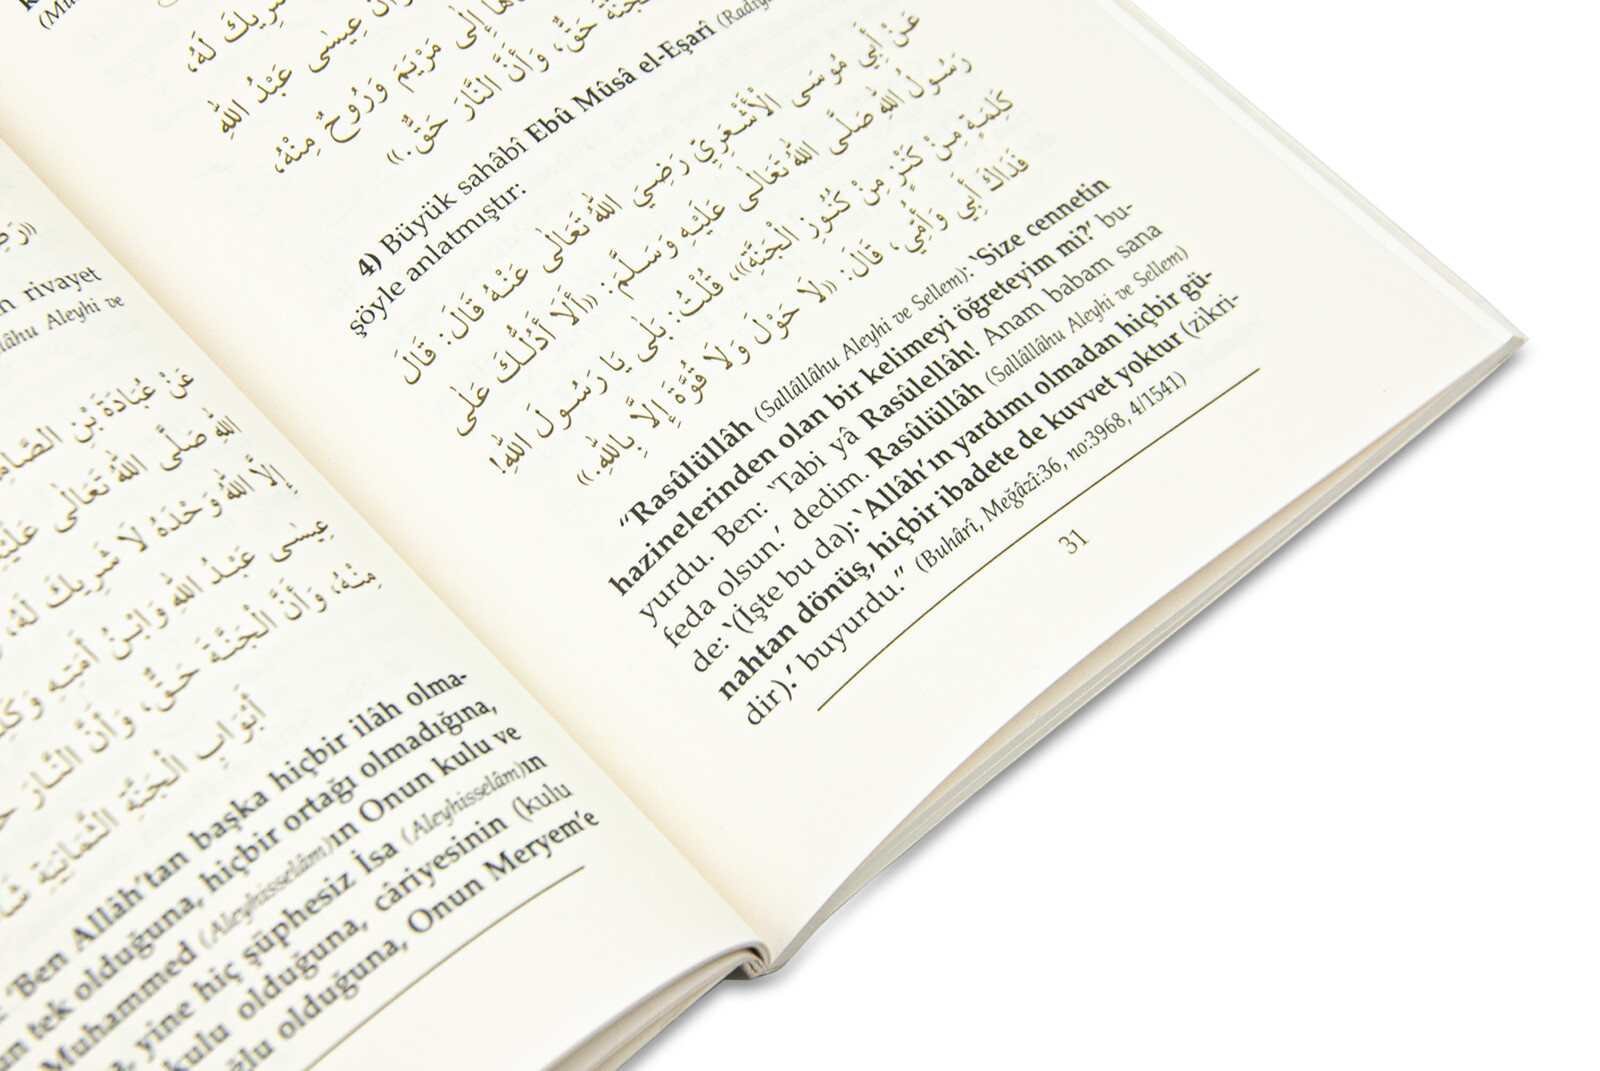 رضِ))
rivayet
lâhu Aleyhi ve
عَنْ عُبَادَةَ بْنِ الصَّامِ
اللهِ صَلَّى اللهُ تَعَالٰى عَلَيْهِ
إِلَّا اللهُ وَحْدَهُ لَا شَرِيكَ لَهُ،
عِيسٰى عَبْدُ اللهِ وَابْنُ أَمَتِهِ وَكَلِ
مِنْهُ، وَأَنَّ الْجَنَّةَ حَقٌّ، وَأَنَّ النَّارَ حَ
أَبْوَابِ الْجَنَّةِ الثَّمَانِيَةِ شَاءَ
'Ben Allâh'tan başka hiçbir ilâh olma-
un tek olduğuna, hiçbir ortağı olmadığına,
Muhammed (Aleyhisselâm)ın Onun kulu ve
yine hiç şüphesiz İsa (Aleyhisselâm)ın
kulu olduğuna, câriyesinin (kulu
ğlu olduğuna, Onun Meryem'e
شَرِيكَ لَهُ،
وَأَنَّ عِيسٰى عَبْدُ اللهِ
إِلٰى مَرْيَمَ وَرُوحٌ مِنْهُ،
حَقٌّ، وَأَنَّ النَّارَ حَقٌّ.»
4) Büyük sahâbî Ebû Mûsâ el-Eşarî
şöyle anlatmıştır:
عَنْ أَبِي مُوسَى الْأَشْعَرِيِّ رَضِيَ اللهُ تَعَالٰى عَنْهُ قَالَ: قَالَ
رَسُولُ اللهِ صَلَّى اللهُ تَعَالٰى عَلَيْهِ وَسَلَّمَ: «أَلَا أَدُلُّكَ عَلٰى
كَلِمَةٍ مِنْ كَنْزٍ مِنْ كُنُوزِ الْجَنَّةِ»، قُلْتُ: بَلٰى يَا رَسُولَ اللهِ!
فَدَاكَ أَبِي وَأُمِّي، قَالَ: «لَا حَوْلَ وَلَا قُوَّةَ إِلَّا بِاللهِ.»
"Rasûlüllâh (Sallâllâhu Aleyhi ve Sellem): 'Size cennetin
hazinelerinden olan bir kelimeyi öğreteyim mi?' bu-
yurdu. Ben: 'Tabi yâ Rasûlellâh! Anam babam sana
feda olsun.' dedim. Rasûlüllâh (Sallâllâhu Aleyhi ve Sellem)
de: '(İşte bu da): 'Allâh'ın yardımı olmadan hiçbir gü-
nahtan dönüş, hiçbir ibadete de kuvvet yoktur (zikri-
dir).' buyurdu." (Buhârî, Meğâzî:36, no:3968, 4/1541)
31